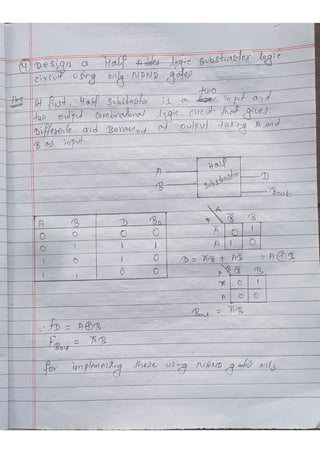 Q) Design a Half Adder logic Substractor logic
circuit using only NAND gates
Ans At first, Half Substractor is a two input and
two output combinational logic circuit that gives
Difference and Borrow out as output taking A and
B as input.
Half
Substractor
A
B
D
Bout
A B D B₀
0 0 0 0
0 1 1 1
1 0 1 0
1 1 0 0
B̅ B
A̅ 0 1
A 1 0
D = A̅B + AB̅ = A⊕B
B̅ B
A̅ 0 1
A 0 0
Bout = A̅B
∴ fD = A⊕B
fBout = A̅B
for implementing these using NAND gates only